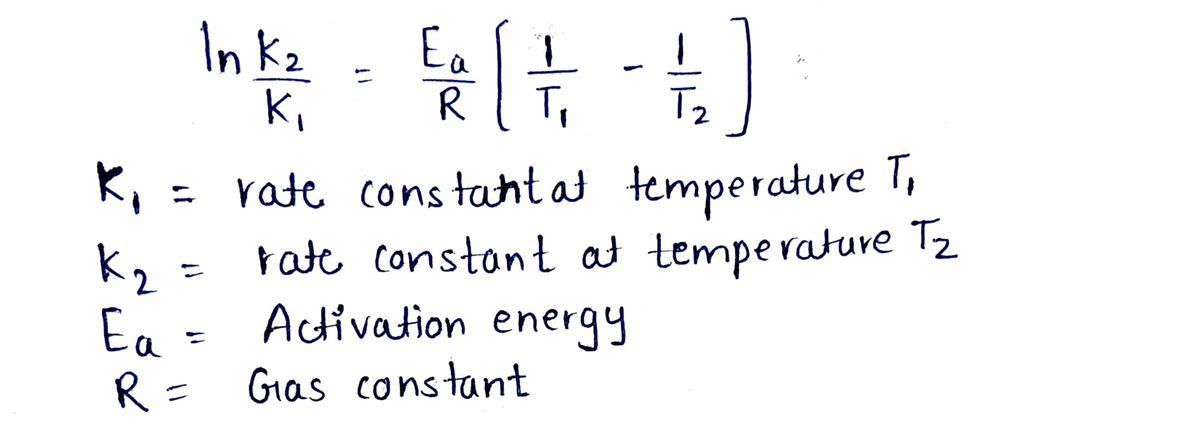 ln K₂/K₁ = Ea/R [ 1/T₁ - 1/T₂ ]
K₁ = rate constant at temperature T₁
K₂ = rate constant at temperature T₂
Ea = Activation energy
R = Gas constant